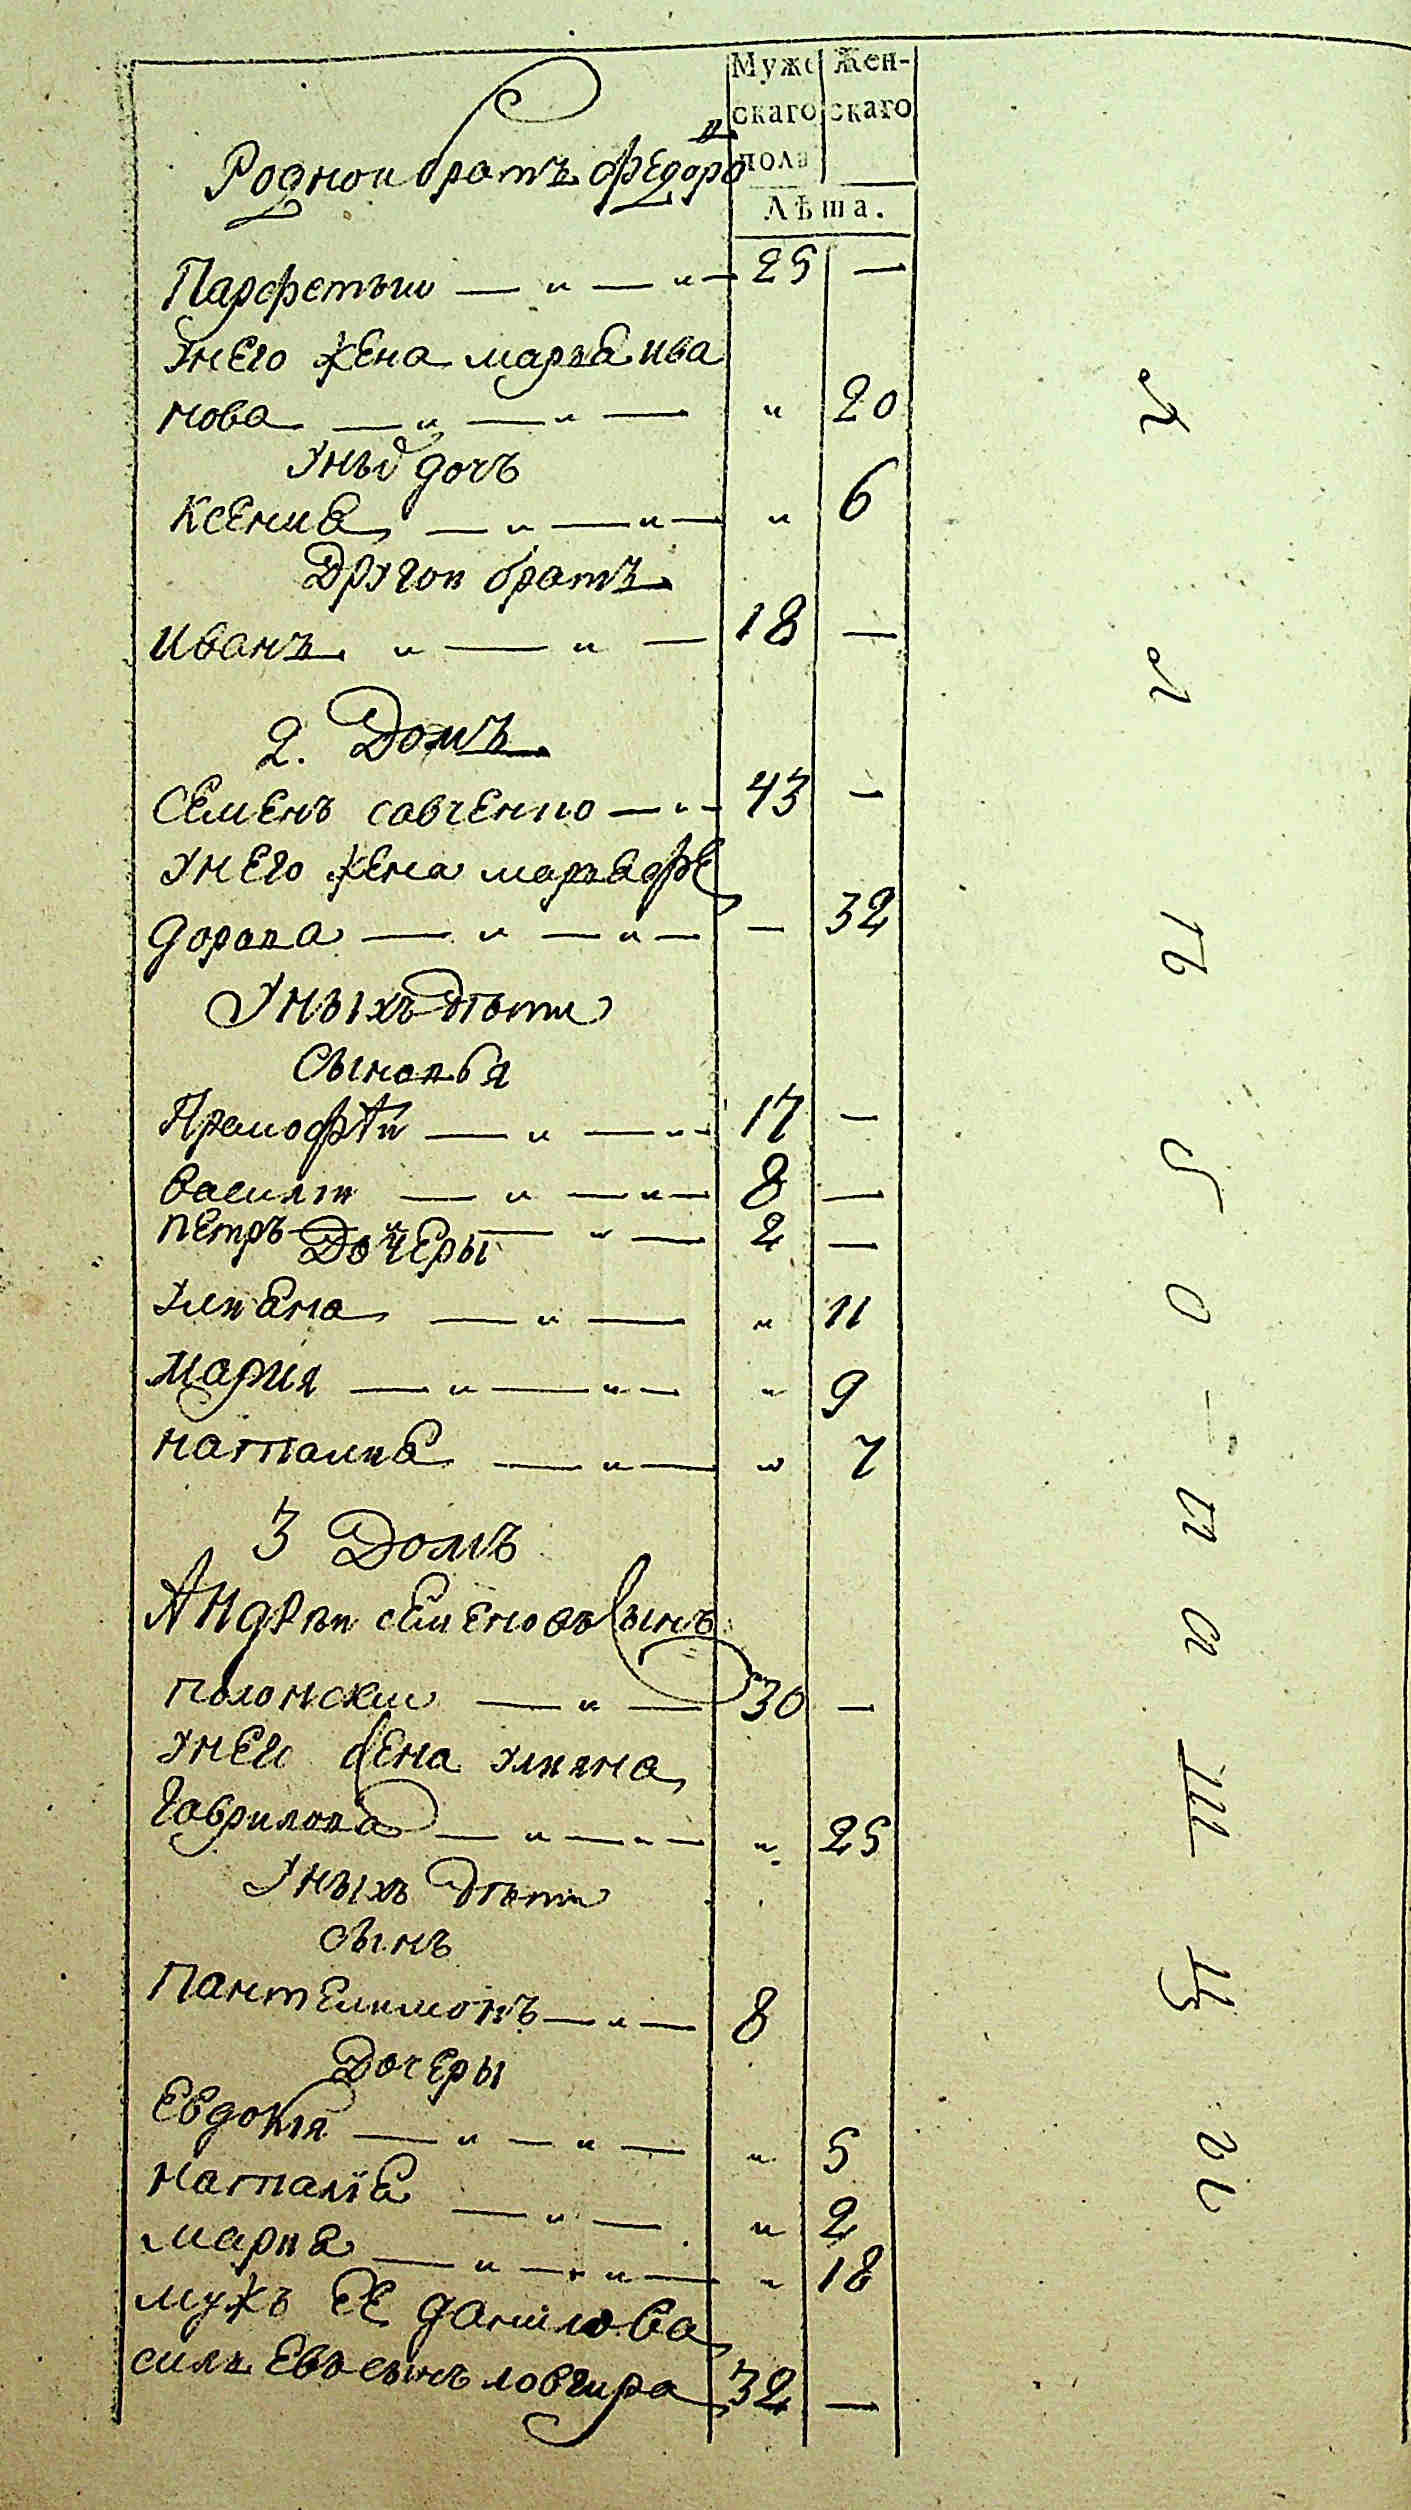 Муже Жен-
скаго скаго
пола
Лѣта.
Роднои братъ федоръ
Парфетъии — „ — „ — 25 —
Унего жена мариа ива
нова — „ — „ — „ 20
Унъи дочъ
Ксениа — „ — „ — „ 6
Другои братъ
иванъ „ — „ — 18 —
2. Домъ
Семенъ савченко — „ — 43 —
Унего жена мариа фе
дорова — „ — „ — — 32
Уныхъ дѣти
Сыновья
Прокофѣи — „ — „ — 17 —
Василіи — „ — „ — 8 —
Петръ — „ — „ — 2 —
Дочеры
Улиана — „ — „ 11
Мария — „ — „ — „ 9
Наталиа — „ — „ 7
3 Домъ
Андрѣи семеновъ сынъ
полонскии — „ — 30 —
Унего жена улияна
Гаврилова — „ — „ — „ 25
Уныхъ дѣти
сынъ
Пантелимонъ — „ — 8
Дочеры
Евдокія — „ — „ — „ 5
Наталіа — „ — „ 2
Мариа — „ — „ — „ 18
Мужъ ее данило ва
сильевъ сынъ ловчира 32 —